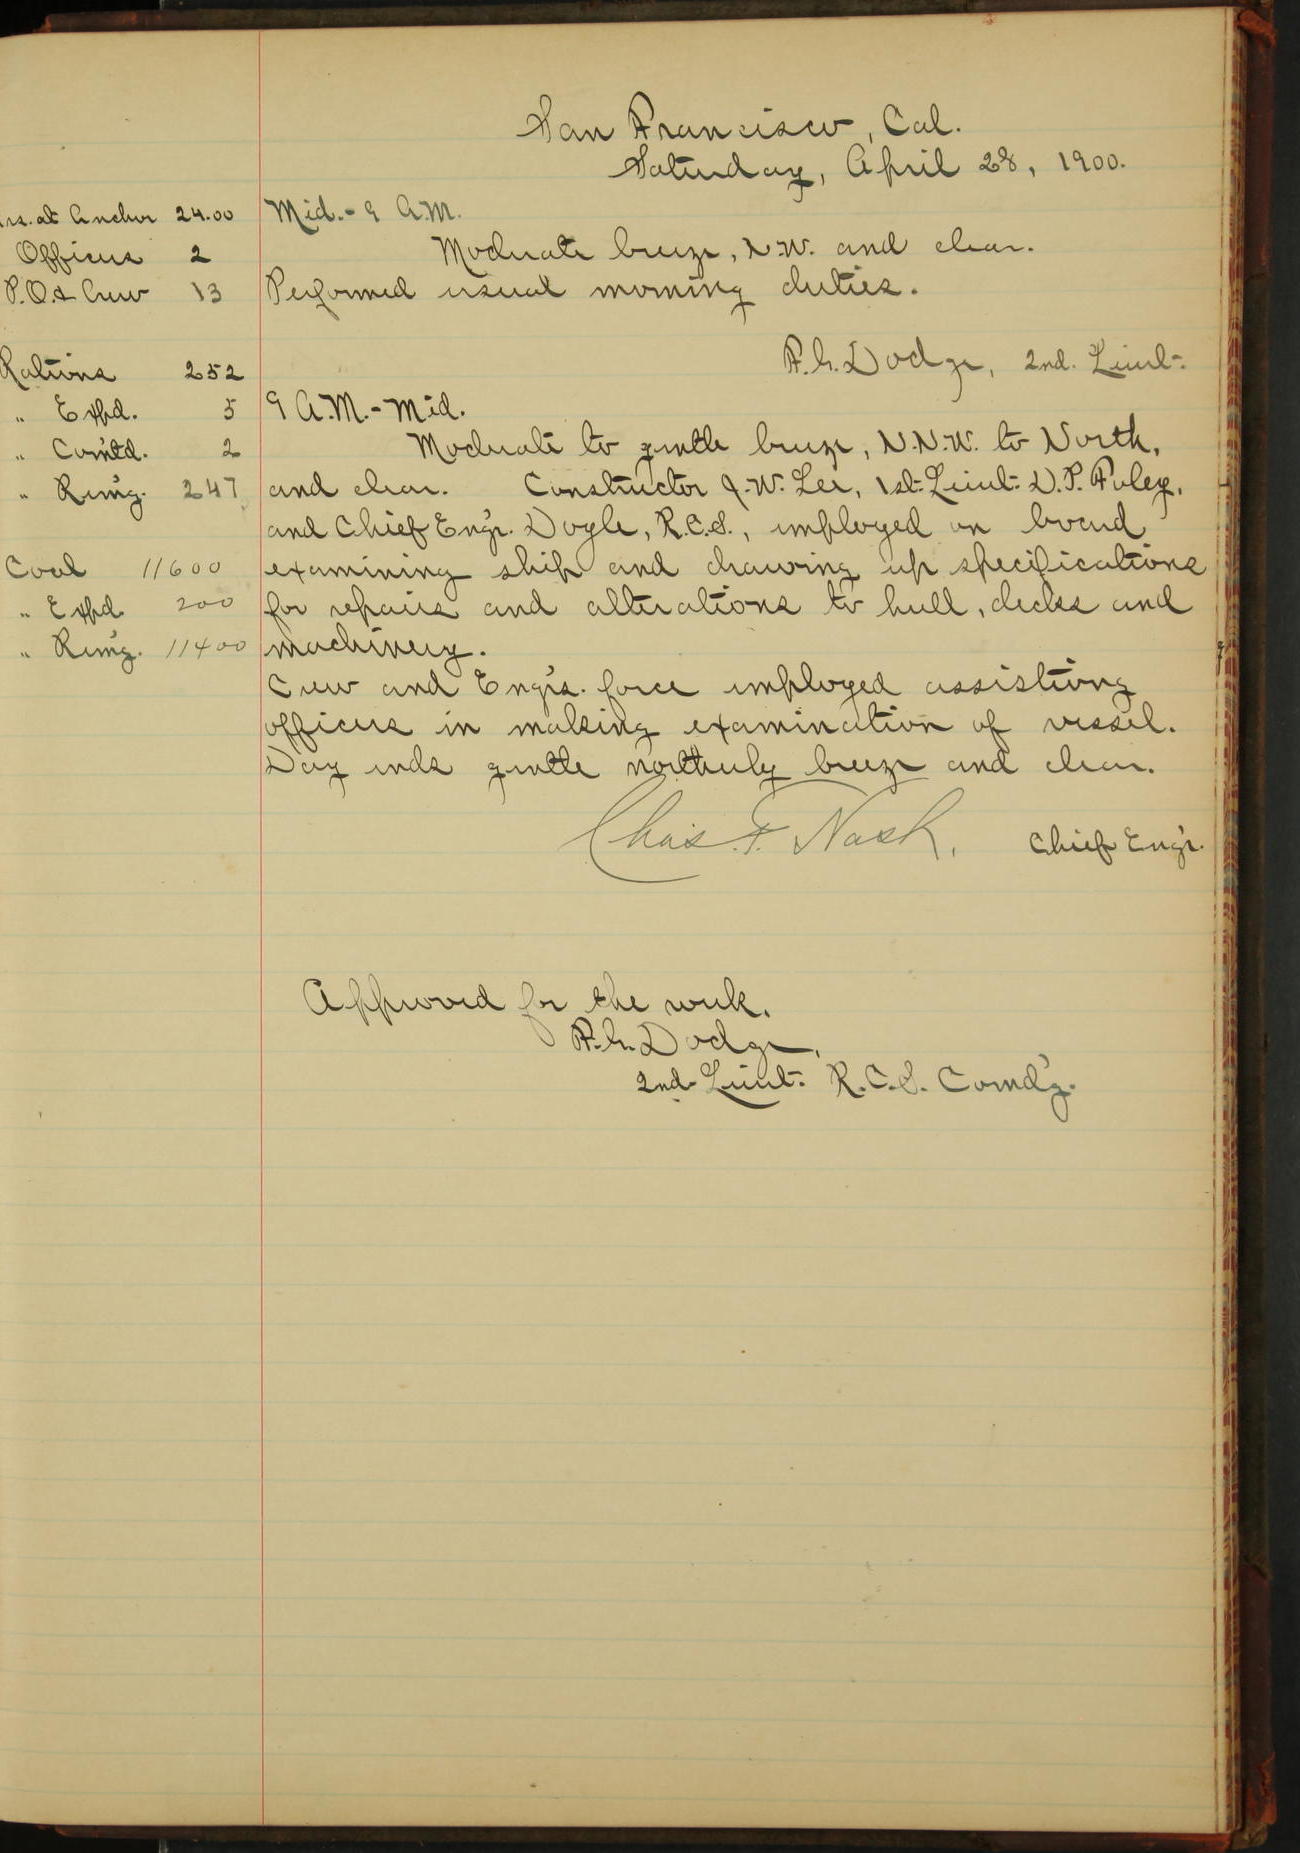 San Francisco, Cal.
Saturday, April 28, 1900.
Hrs. at Anchor 24.00
Officers 2
P.O. & Crew 13
Rations 252
" Exp'd. 5
" Com't'd. 2
" Rem'g. 247
Coal 11600
" Exp'd 200
" Rem'g. 11400
Mid. - 9 A.M.
Moderate breeze, N.W. and clear.
Performed usual morning duties.
F.G. Dodge, 2nd. Lieut.
9 A.M. - Mid.
Moderate to gentle breeze, N.N.W. to North,
and clear. Constructor J.W. Lee, 1st. Lieut. D.P. Foley,
and Chief Eng'r. Doyle, R.C.S., employed on board
examining ship and drawing up specifications
for repairs and alterations to hull, decks and
machinery.
Crew and Eng'r's. force employed assisting
officers in making examination of vessel.
Day ends gentle northerly breeze and clear.
Chas. F. Nash, Chief Eng'r.
Approved for the week.
F.G. Dodge,
2nd. Lieut. R.C.S. Comd'g.